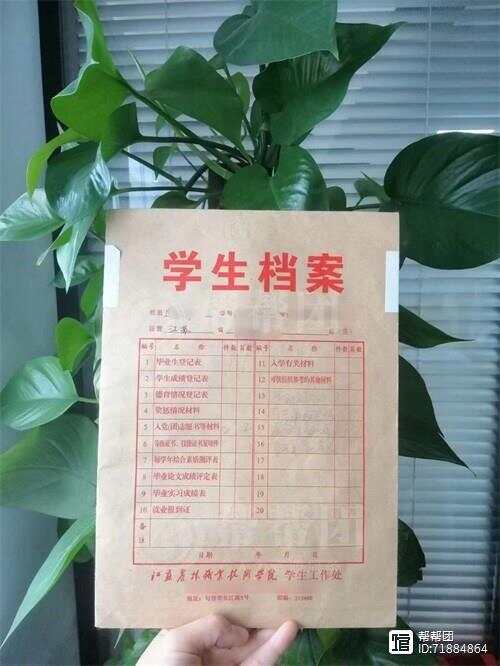 学生档案
姓名 学号
籍贯 江苏 省 县(市)
编号 名称 件数 页数 编号 名称 件数 页数
1 毕业生登记表 11 入学有关材料
2 学生成绩登记表 12 可供组织参考的其他材料
3 德育情况登记表 13
4 奖惩情况材料 14
5 入党(团)志愿书等材料 15
6 等级证书、技能证书复印件 16
7 每学年综合素质测评表 17
8 毕业论文成绩评定表 18
9 毕业实习成绩表 19
10 就业报到证 20
备注
日期 年 月 日
江苏农林职业技术学院 学生工作处
地址:句容市长江路3号 邮编:212400
帮帮团
ID:71884864